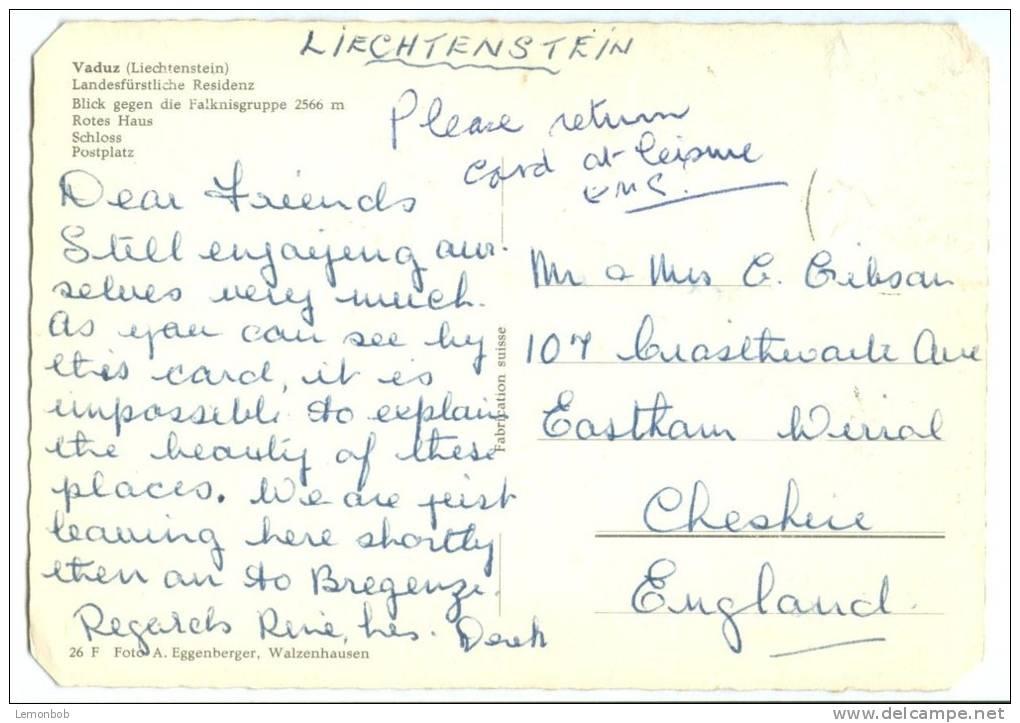 LIECHTENSTEIN
Vaduz (Liechtenstein)
Landesfürstliche Residenz
Blick gegen die Falknisgruppe 2566 m
Rotes Haus
Schloss
Postplatz
Please return
card at leisure
Dear Friends
Still enjoying our-
selves very much.
As you can see by
this card, it is
impossible to explain
the beauty of these
places. We are just
leaving here shortly
then on to Bregenz.
Regards Rene, Les. Derek
Fabrication suisse
Mr & Mrs C. Gibson
107 Ave
Eastham Wirral
Cheshire
England
26 F Foto A. Eggenberger, Walzenhausen
Lemonbob
www.delcampe.net